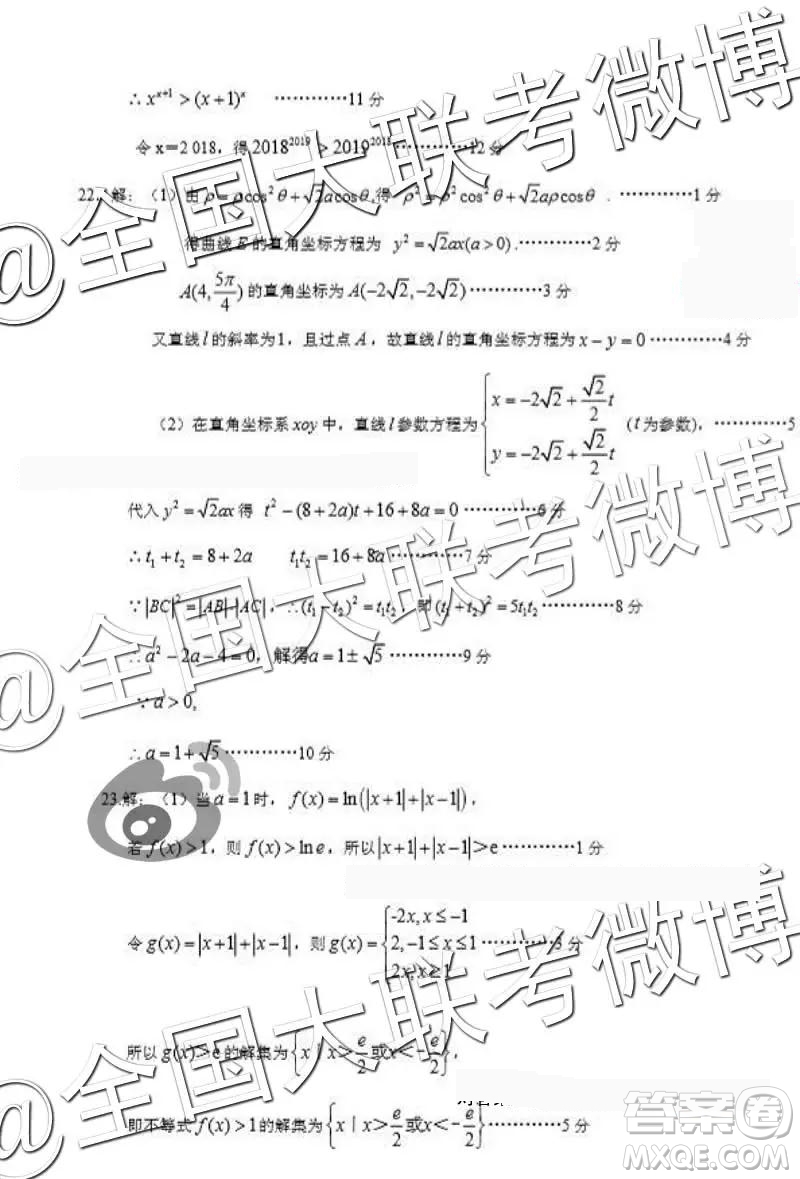 ∴ x^{x+1} > (x+1)^x …………11 分
令 x＝2 018，得 2018^{2019} > 2019^{2018} …………12 分
22. 解：（1）由 ρ = ρcos²θ + √2acosθ, 得 ρ² = ρ²cos²θ + √2aρcosθ . …………1 分
得曲线 E 的直角坐标方程为 y² = √2ax(a > 0) . …………2 分
A(4, 5π/4) 的直角坐标为 A(−2√2, −2√2) …………3 分
又直线 l 的斜率为1，且过点 A，故直线 l 的直角坐标方程为 x − y = 0 …………4 分
（2）在直角坐标系 xoy 中，直线 l 参数方程为 { x = −2√2 + √2/2 t, y = −2√2 + √2/2 t (t 为参数)，…………5
代入 y² = √2ax 得 t² − (8 + 2a)t + 16 + 8a = 0 …………6 分
∴ t₁ + t₂ = 8 + 2a t₁t₂ = 16 + 8a …………7 分
∵ |BC|² = |AB|·|AC|，∴ (t₁ − t₂)² = t₁t₂，即 (t₁ + t₂)² = 5t₁t₂ …………8 分
∴ a² − 2a − 4 = 0，解得 a = 1 ± √5 …………9 分
∵ a > 0,
∴ a = 1 + √5 …………10 分
23.解：（1）当 a = 1 时，f(x) = ln(|x+1| + |x−1|)，
若 f(x) > 1，则 f(x) > ln e，所以 |x+1| + |x−1| > e …………1 分
令 g(x) = |x+1| + |x−1|，则 g(x) = { -2x, x ≤ −1
2, −1 ≤ x ≤ 1 …………3 分
2x, x ≥ 1
所以 g(x) > e 的解集为 {x | x > e/2 或 x < −e/2}，
即不等式 f(x) > 1 的解集为 {x | x > e/2 或 x < −e/2} …………5 分
@全国大联考微博
@全国大联考微博
@全国大联考微博
答案卷
MXQE.COM